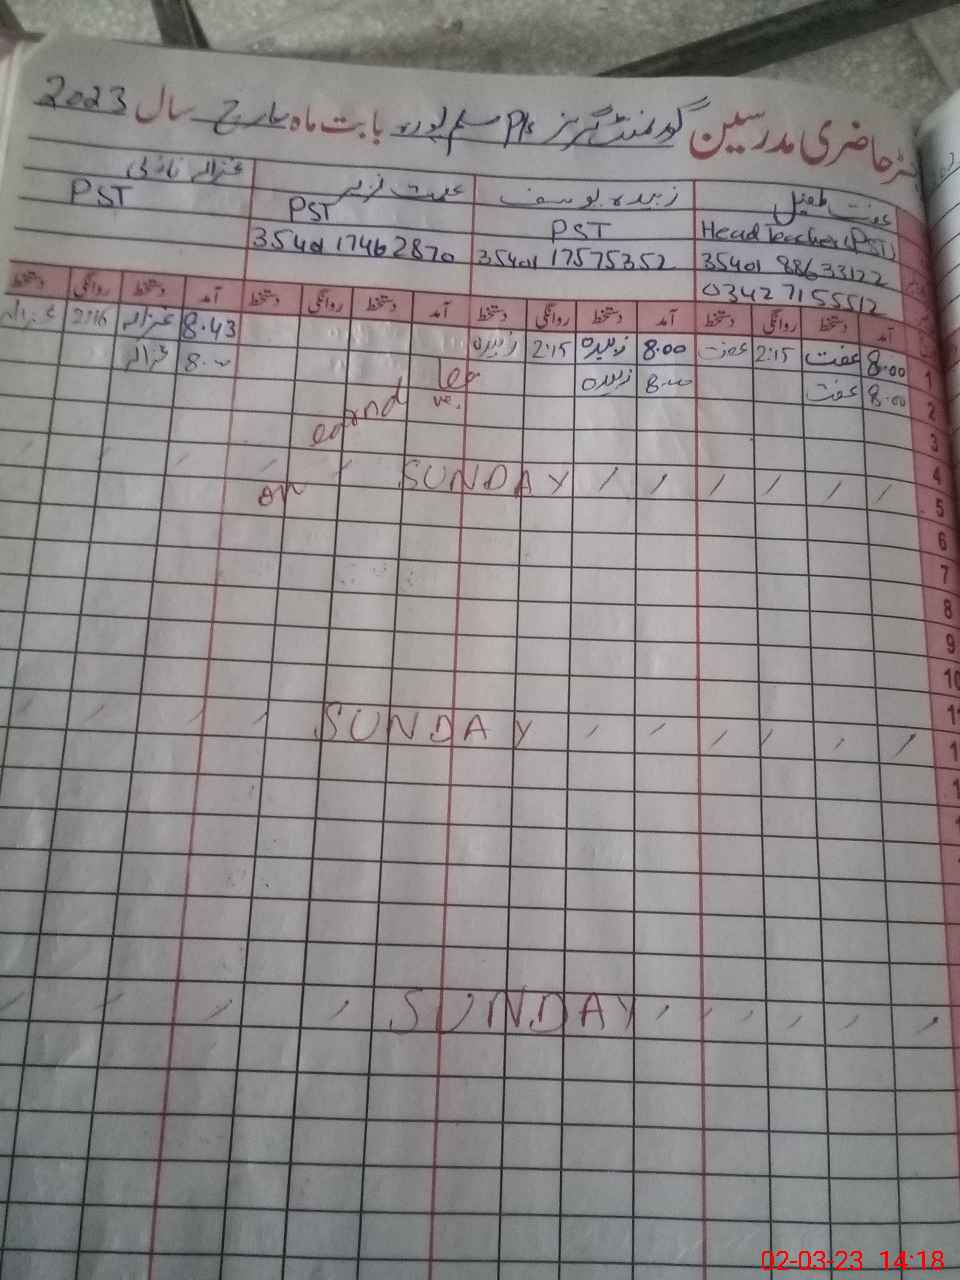 رجسٹر حاضری مدرسین گورنمنٹ گرلز P/s مسلم پورہ بابت ماہ مارچ سال 2023
عفت طفیل زبیدہ یوسف عصمت غزالہ
Head Teacher (PST) PST PST PST
35401 88633122 35401 17575352 35401 17462870
03427155512
آمد دستخط روانگی دستخط آمد دستخط روانگی دستخط آمد دستخط روانگی دستخط آمد دستخط روانگی دستخط
1 8:00 عفت 2:15 عفت 8:00 زبیدہ 2:15 زبیدہ 8:43 غزالہ 2:16 غزالہ
2 8:00 عفت 8:00 زبیدہ le 8:00 غزالہ
ve.
3
4
5 SUNDAY
on
6
7
8
9
10
11
1 SUNDAY
1
1
SUNDAY
02-03-23 14:18